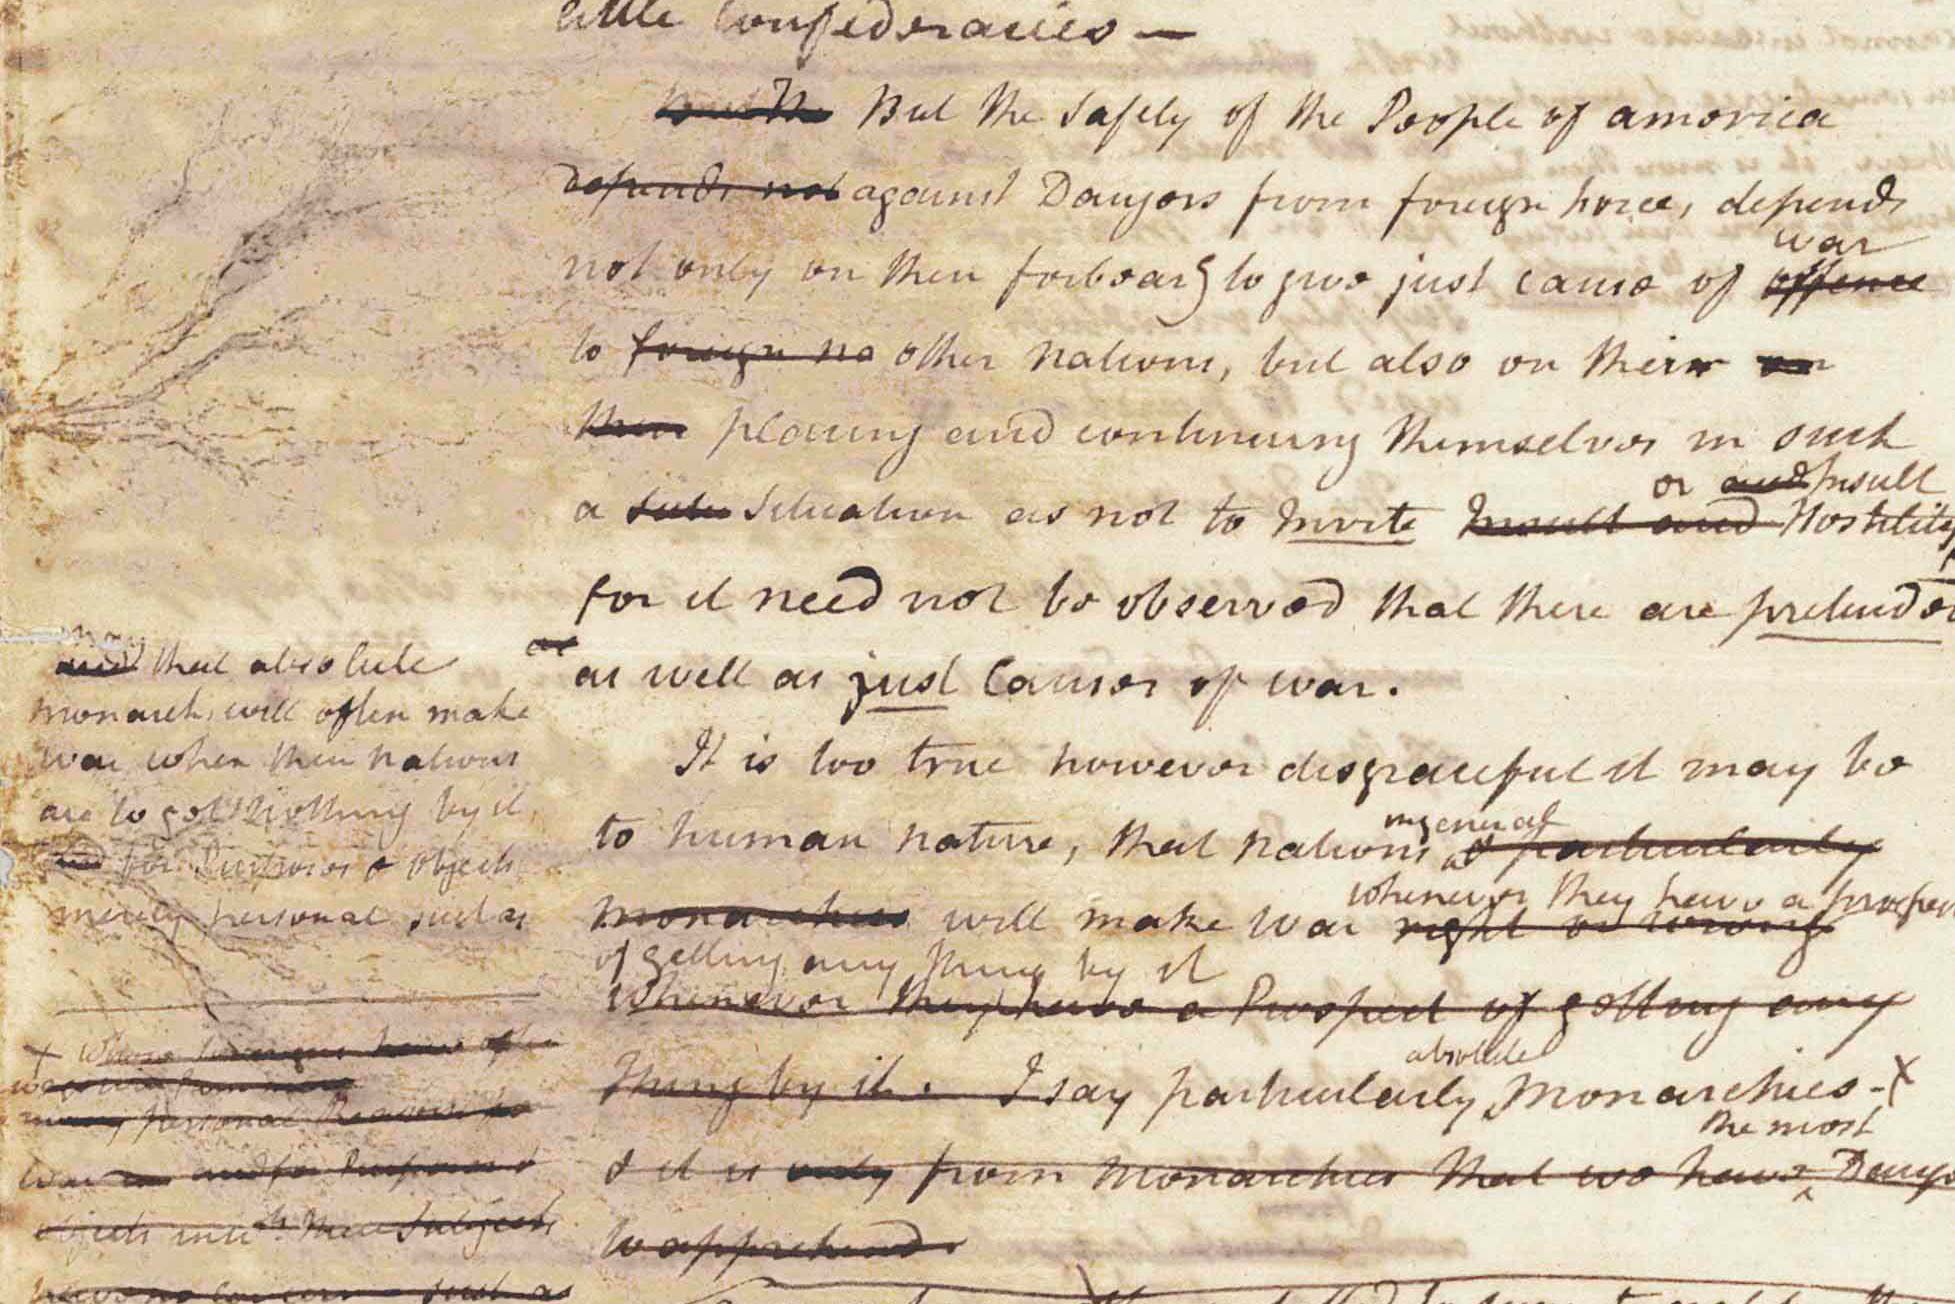 little Confederacies —
But the Safety of the People of america
depends not against Dangers from foreign force, depends
not only on their forbearg to give just cause of offence
war
to foreign na other nations, but also on their on
their placing and continuing themselves in such
or and Insult
a Situation as not to Invite Insult and Hostility
for it need not be observed that there are pretended
as
as well as just Causes of war.
It is too true however disgraceful it may be
in general
to human nature, that nations & particularly
whenever they have a prospect
monarchies will make war right or wrong
of getting any thing by it
whenever they have a Prospect of getting any
absolute
Thing by it. I say particularly Monarchies - X
the most
& it is only from Monarchies that we have ^ Danger
to apprehend.
may
and that absolute
monarchs will often make
war when their nations
are to get Nothing by it
for Purposes & Objects
merely personal such as
X whose have often
many personal Reasons
war and for Purposes &
objects their Subjects
have no concern - such as